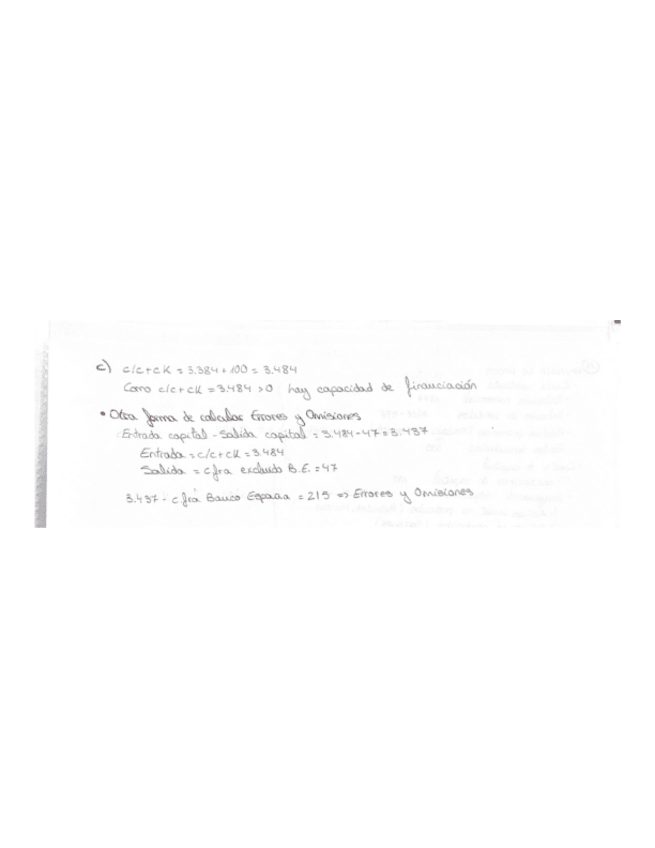 c) c/c+cK = 3.384 + 100 = 3.484
Como c/c+cK = 3.484 >0 hay capacidad de financiación
• Otra forma de calcular Errores y Omisiones
Entrada capital - Salida capital = 3.484-47 = 3.437
Entrada = c/c+cK = 3.484
Salida = c.fra excluido B.E. = 47
3.437 - c.fra Banco España = 215 => Errores y Omisiones